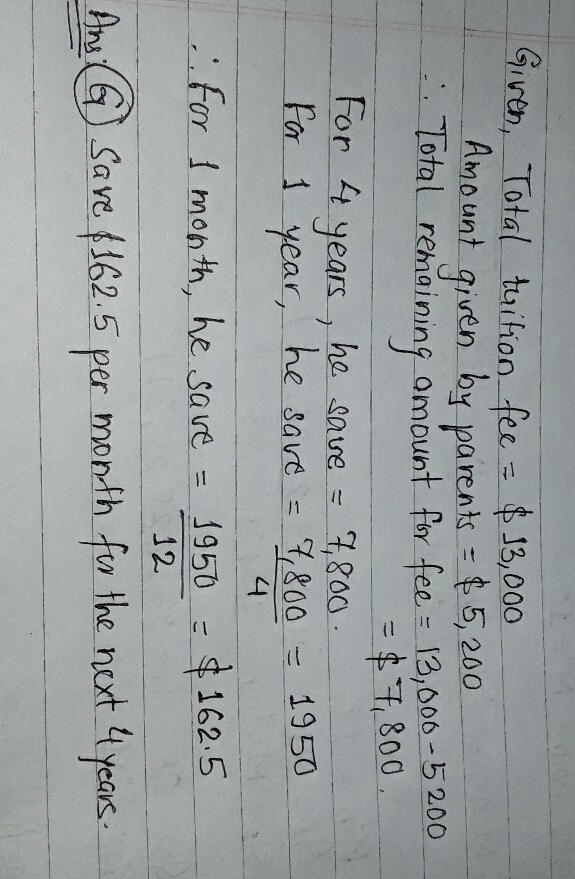 Given, Total tuition fee = $ 13,000
Amount given by parents = $ 5,200
∴ Total remaining amount for fee = 13,000 - 5200
= $ 7,800.
For 4 years, he save = 7,800.
For 1 year, he save = 7,800/4 = 1950
∴ For 1 month, he save = 1950/12 = $ 162.5
Ans: (G) Save $162.5 per month for the next 4 years.